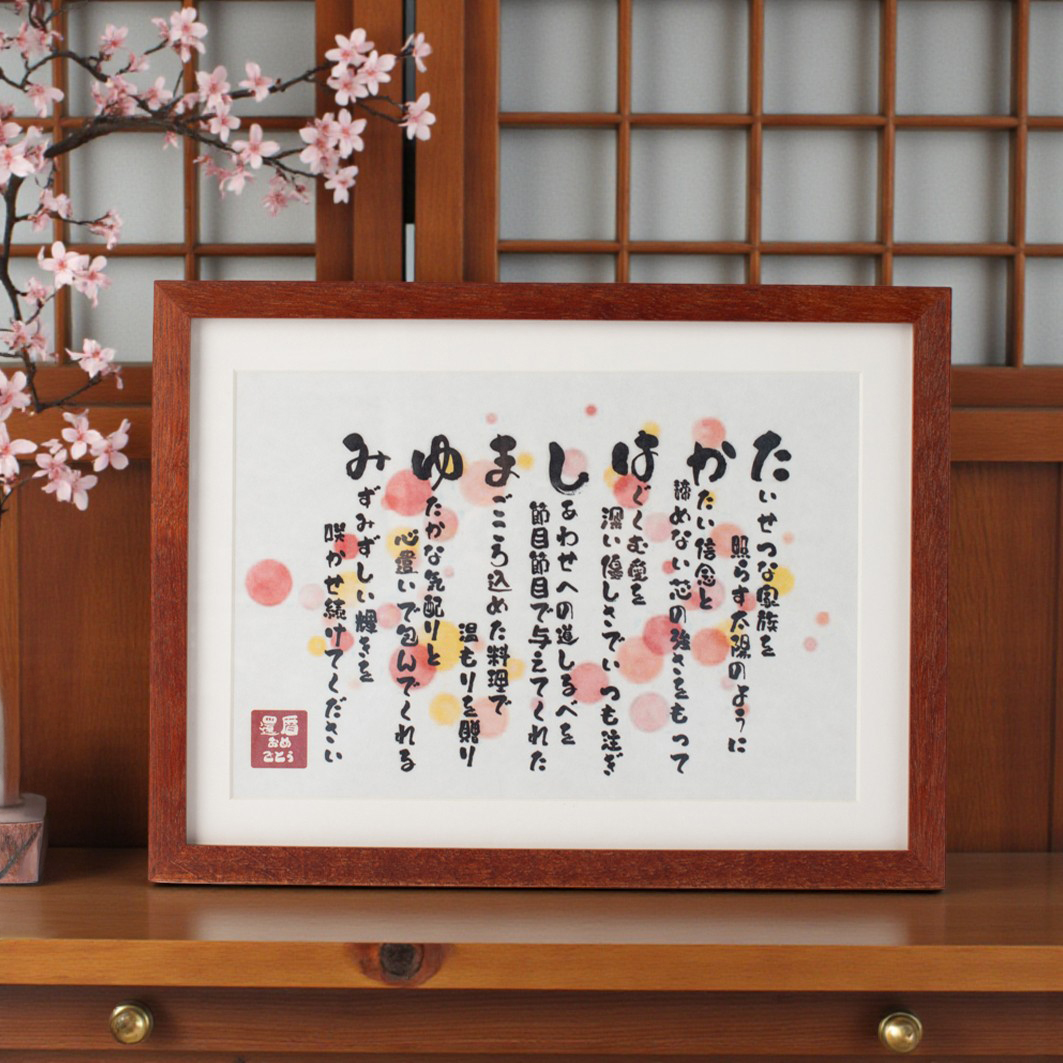 たいせつな家族を
照らす太陽のように
かたい信念と
諦めない芯の強さをもって
はぐくむ愛を
深い優しさでいつも注ぎ
しあわせへの道しるべを
節目節目で与えてくれた
まごころ込めた料理で
温もりを贈り
ゆたかな気配りと
心遣いで包んでくれる
みずみずしい輝きを
咲かせ続けてください
還暦
おめ
でとう